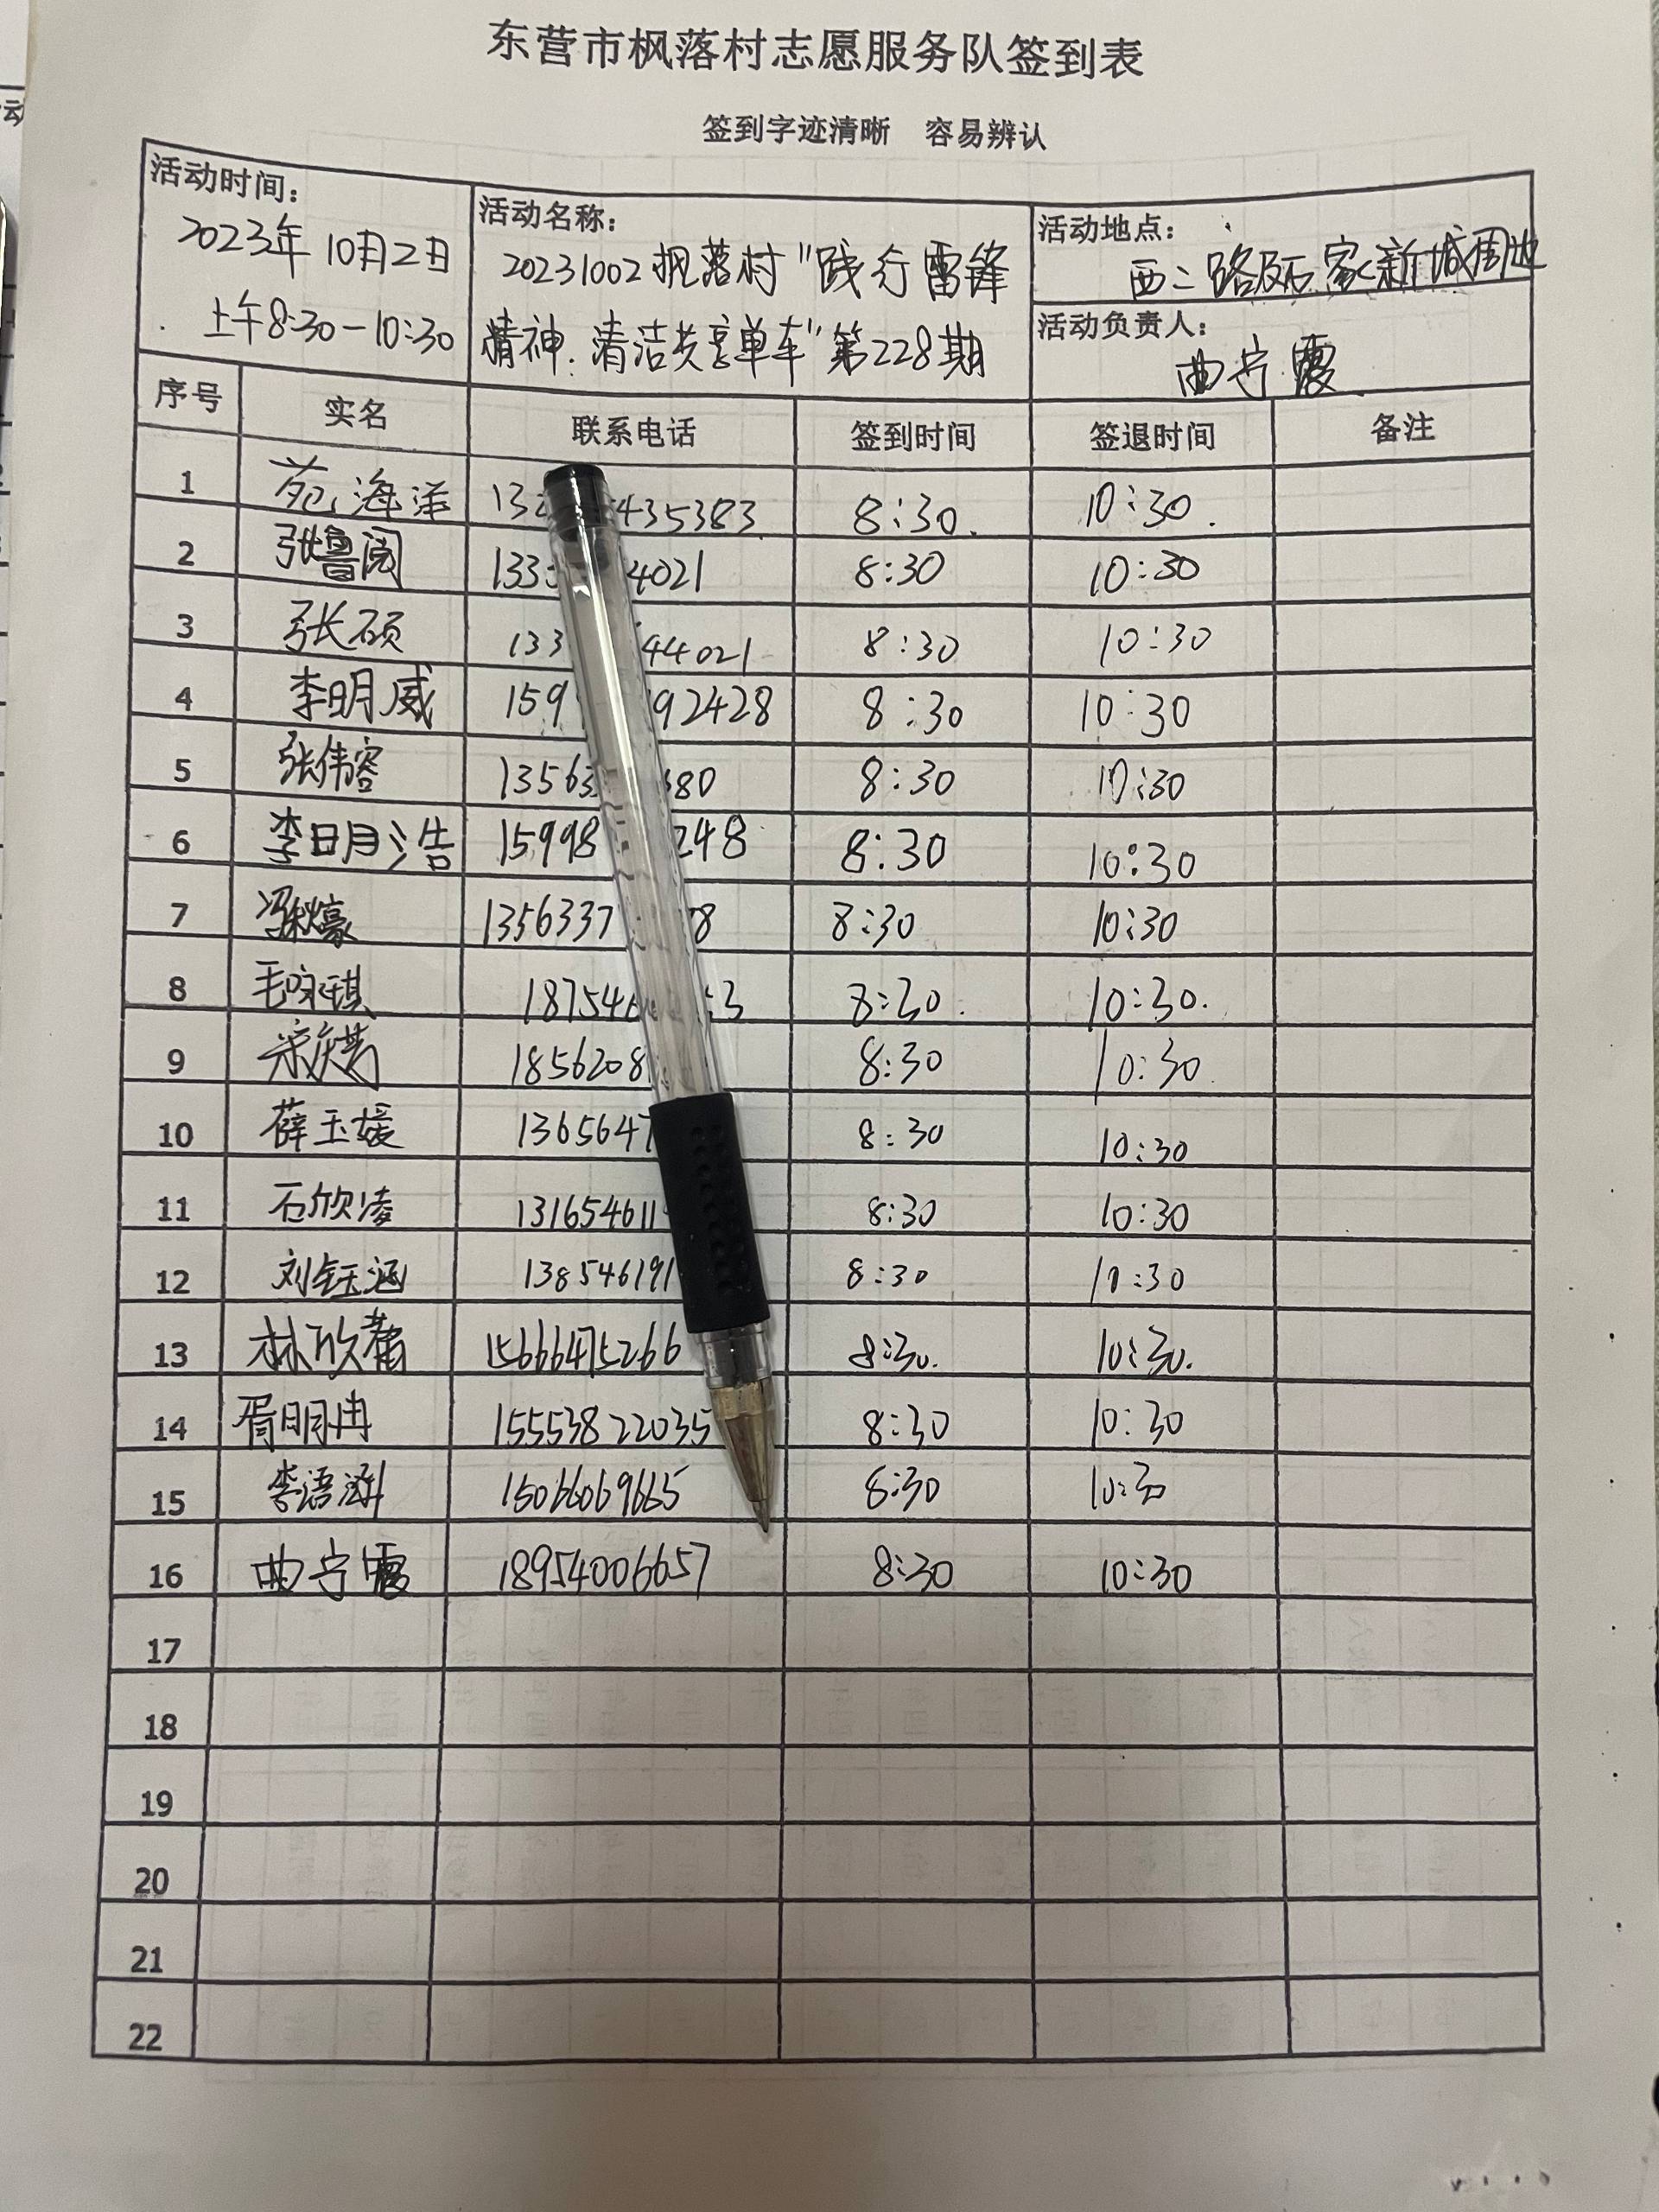 东营市枫落村志愿服务队签到表
签到字迹清晰 容易辨认
活动时间:
2023年10月2日
上午8:30-10:30
活动名称:
20231002枫落村"践行雷锋
精神.清洁共享单车"第228期
活动地点:
西二路及石家新城周边
活动负责人:
曲宁霞
序号 实名 联系电话 签到时间 签退时间 备注
1 苑海洋 13 435383 8:30. 10:30.
2 张鲁闽 133 4021 8:30 10:30
3 张硕 133 44021 8:30 10:30
4 李明威 159 92428 8:30 10:30
5 张伟容 13563 380 8:30 10:30
6 李明浩 15998 248 8:30 10:30
7 1356337 8 8:30 10:30
8 毛咏琪 18754 3 8:30. 10:30.
9 宋庆 1856208 8:30 10:30.
10 薛玉媛 1365647 8:30 10:30
11 石欣凌 131654611 8:30 10:30
12 刘钰涵 138546191 8:30 10:30
13 林欣 15666475266 8:30. 10:30.
14 胥明冉 15553822035 8:30 10:30
15 李语涵 15066069665 8:30 10:30
16 曲宁霞 18954006657 8:30 10:30
17
18
19
20
21
22